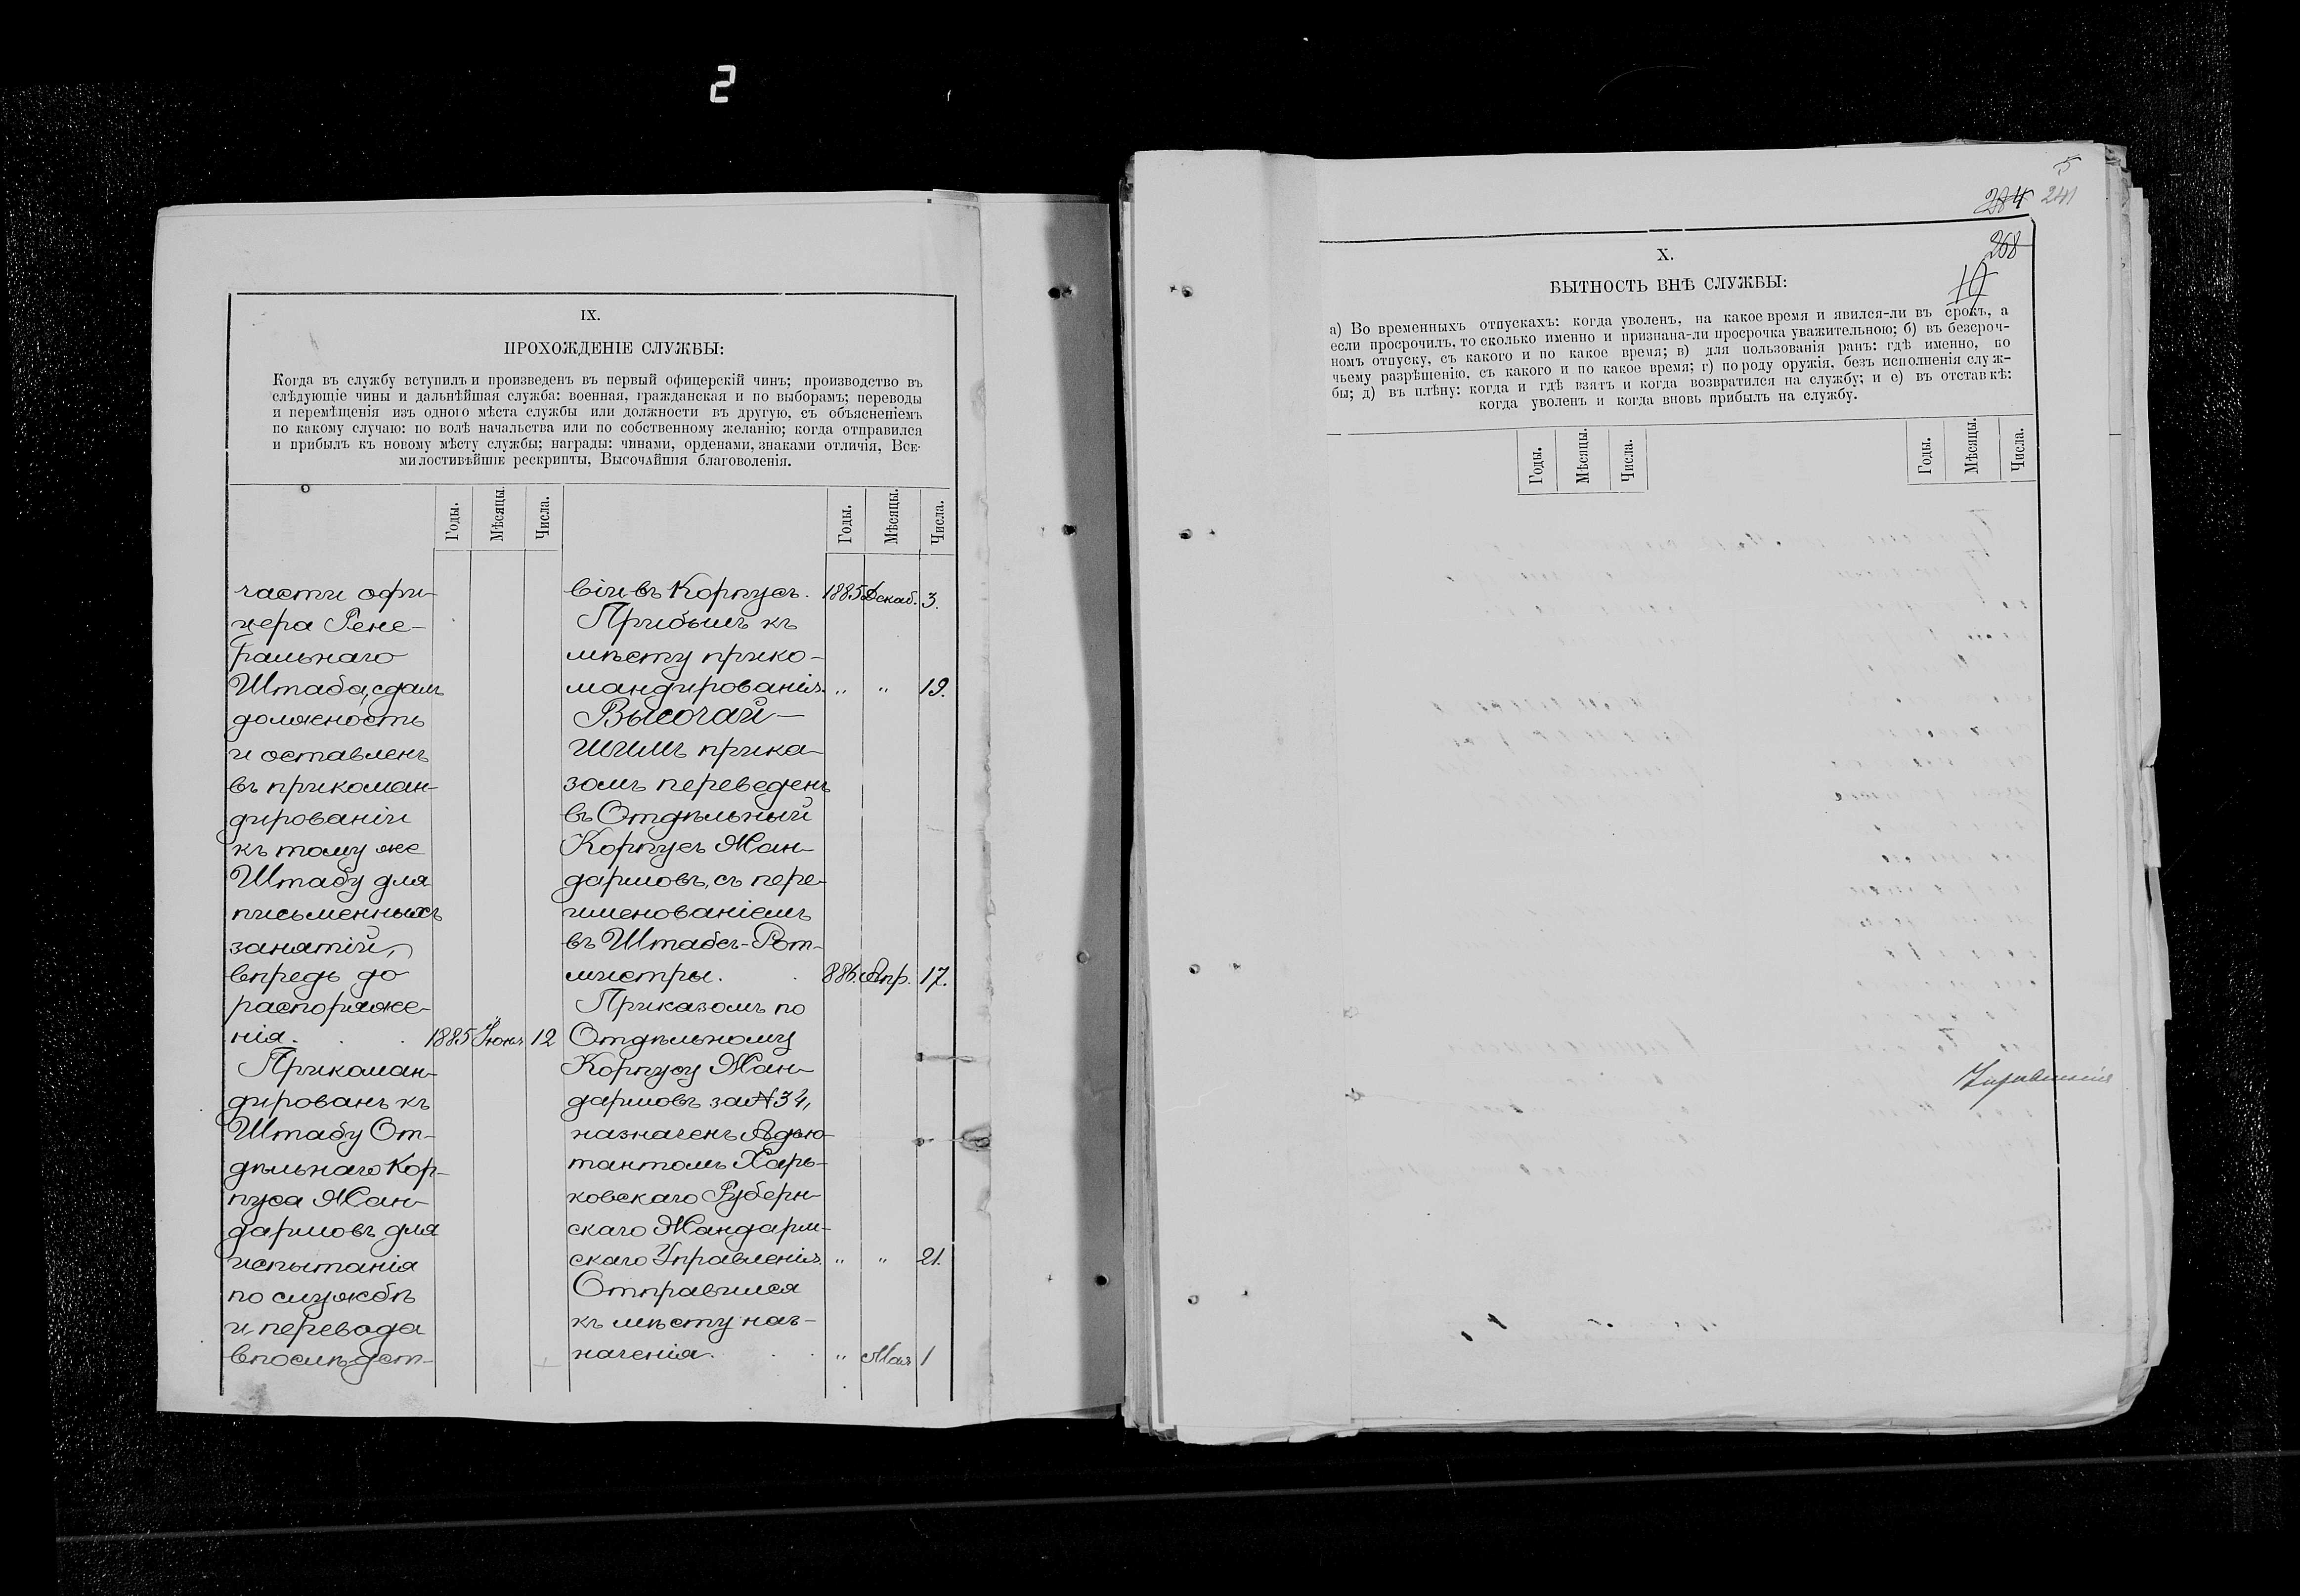 2
IX.
ПРОХОЖДЕНІЕ СЛУЖБЫ:
Когда въ службу вступилъ и произведенъ въ первый офицерскій чинъ; производство въ
слѣдующіе чины и дальнѣйшая служба: военная, гражданская и по выборамъ; переводы
и перемѣщенія изъ одного мѣста службы или должности въ другую, съ объясненіемъ
по какому случаю: по волѣ начальства или по собственному желанію; когда отправился
и прибылъ къ новому мѣсту службы; награды: чинами, орденами, знаками отличія, Все-
милостивѣйшіе рескрипты, Высочайшія благоволенія.
Годы. Мѣсяцы. Числа.
части офи-
цера Гене-
ральнаго
Штаба, сдалъ
должность
и оставленъ
въ прикоман-
дированіи
къ тому же
Штабу для
письменныхъ
занятій,
впредь до
распоряже-
нія. 1885 Іюня 12
Прикоман-
дированъ къ
Штабу От-
дѣльнаго Кор-
пуса Жан-
дармовъ для
испытанія
по службѣ
и перевода
впослѣдст-
Годы. Мѣсяцы. Числа.
віи въ Корпусъ. 1885 Декаб. 3.
Прибылъ къ
мѣсту прико-
мандированія. " " 19.
Высочай-
шимъ прика-
зомъ переведенъ
въ Отдѣльный
Корпусъ Жан-
дармовъ, съ пере-
именованіемъ
въ Штабсъ-Рот-
мистры. 886. Апр. 17.
Приказомъ по
Отдѣльному
Корпусу Жан-
дармовъ за № 34,
назначенъ Адъю-
тантомъ Харь-
ковскаго Губерн-
скаго Жандарм-
скаго Управленія. " " 21.
Отправился
къ мѣсту наз-
наченія. " Мая 1
5
284 241
268
X.
БЫТНОСТЬ ВНѢ СЛУЖБЫ:
а) Во временныхъ отпускахъ: когда уволенъ, на какое время и явился-ли въ срокъ, а
если просрочилъ, то сколько именно и признана-ли просрочка уважительною; б) въ безсроч-
номъ отпуску, съ какого и по какое время; в) для пользованія ранъ: гдѣ именно, по
чьему разрѣшенію, съ какого и по какое время; г) по роду оружія, безъ исполненія служ-
бы; д) въ плѣну: когда и гдѣ взятъ и когда возвратился на службу; и е) въ отставкѣ:
когда уволенъ и когда вновь прибылъ на службу.
Годы. Мѣсяцы. Числа.
Годы. Мѣсяцы. Числа.